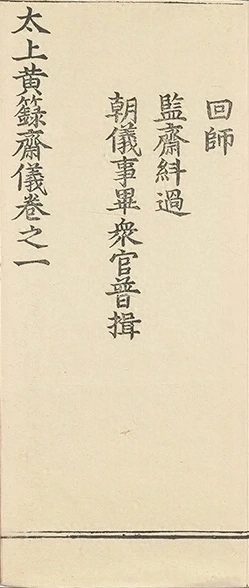 回師
監齋糾過
朝儀事畢衆官普揖
太上黃籙齋儀卷之一